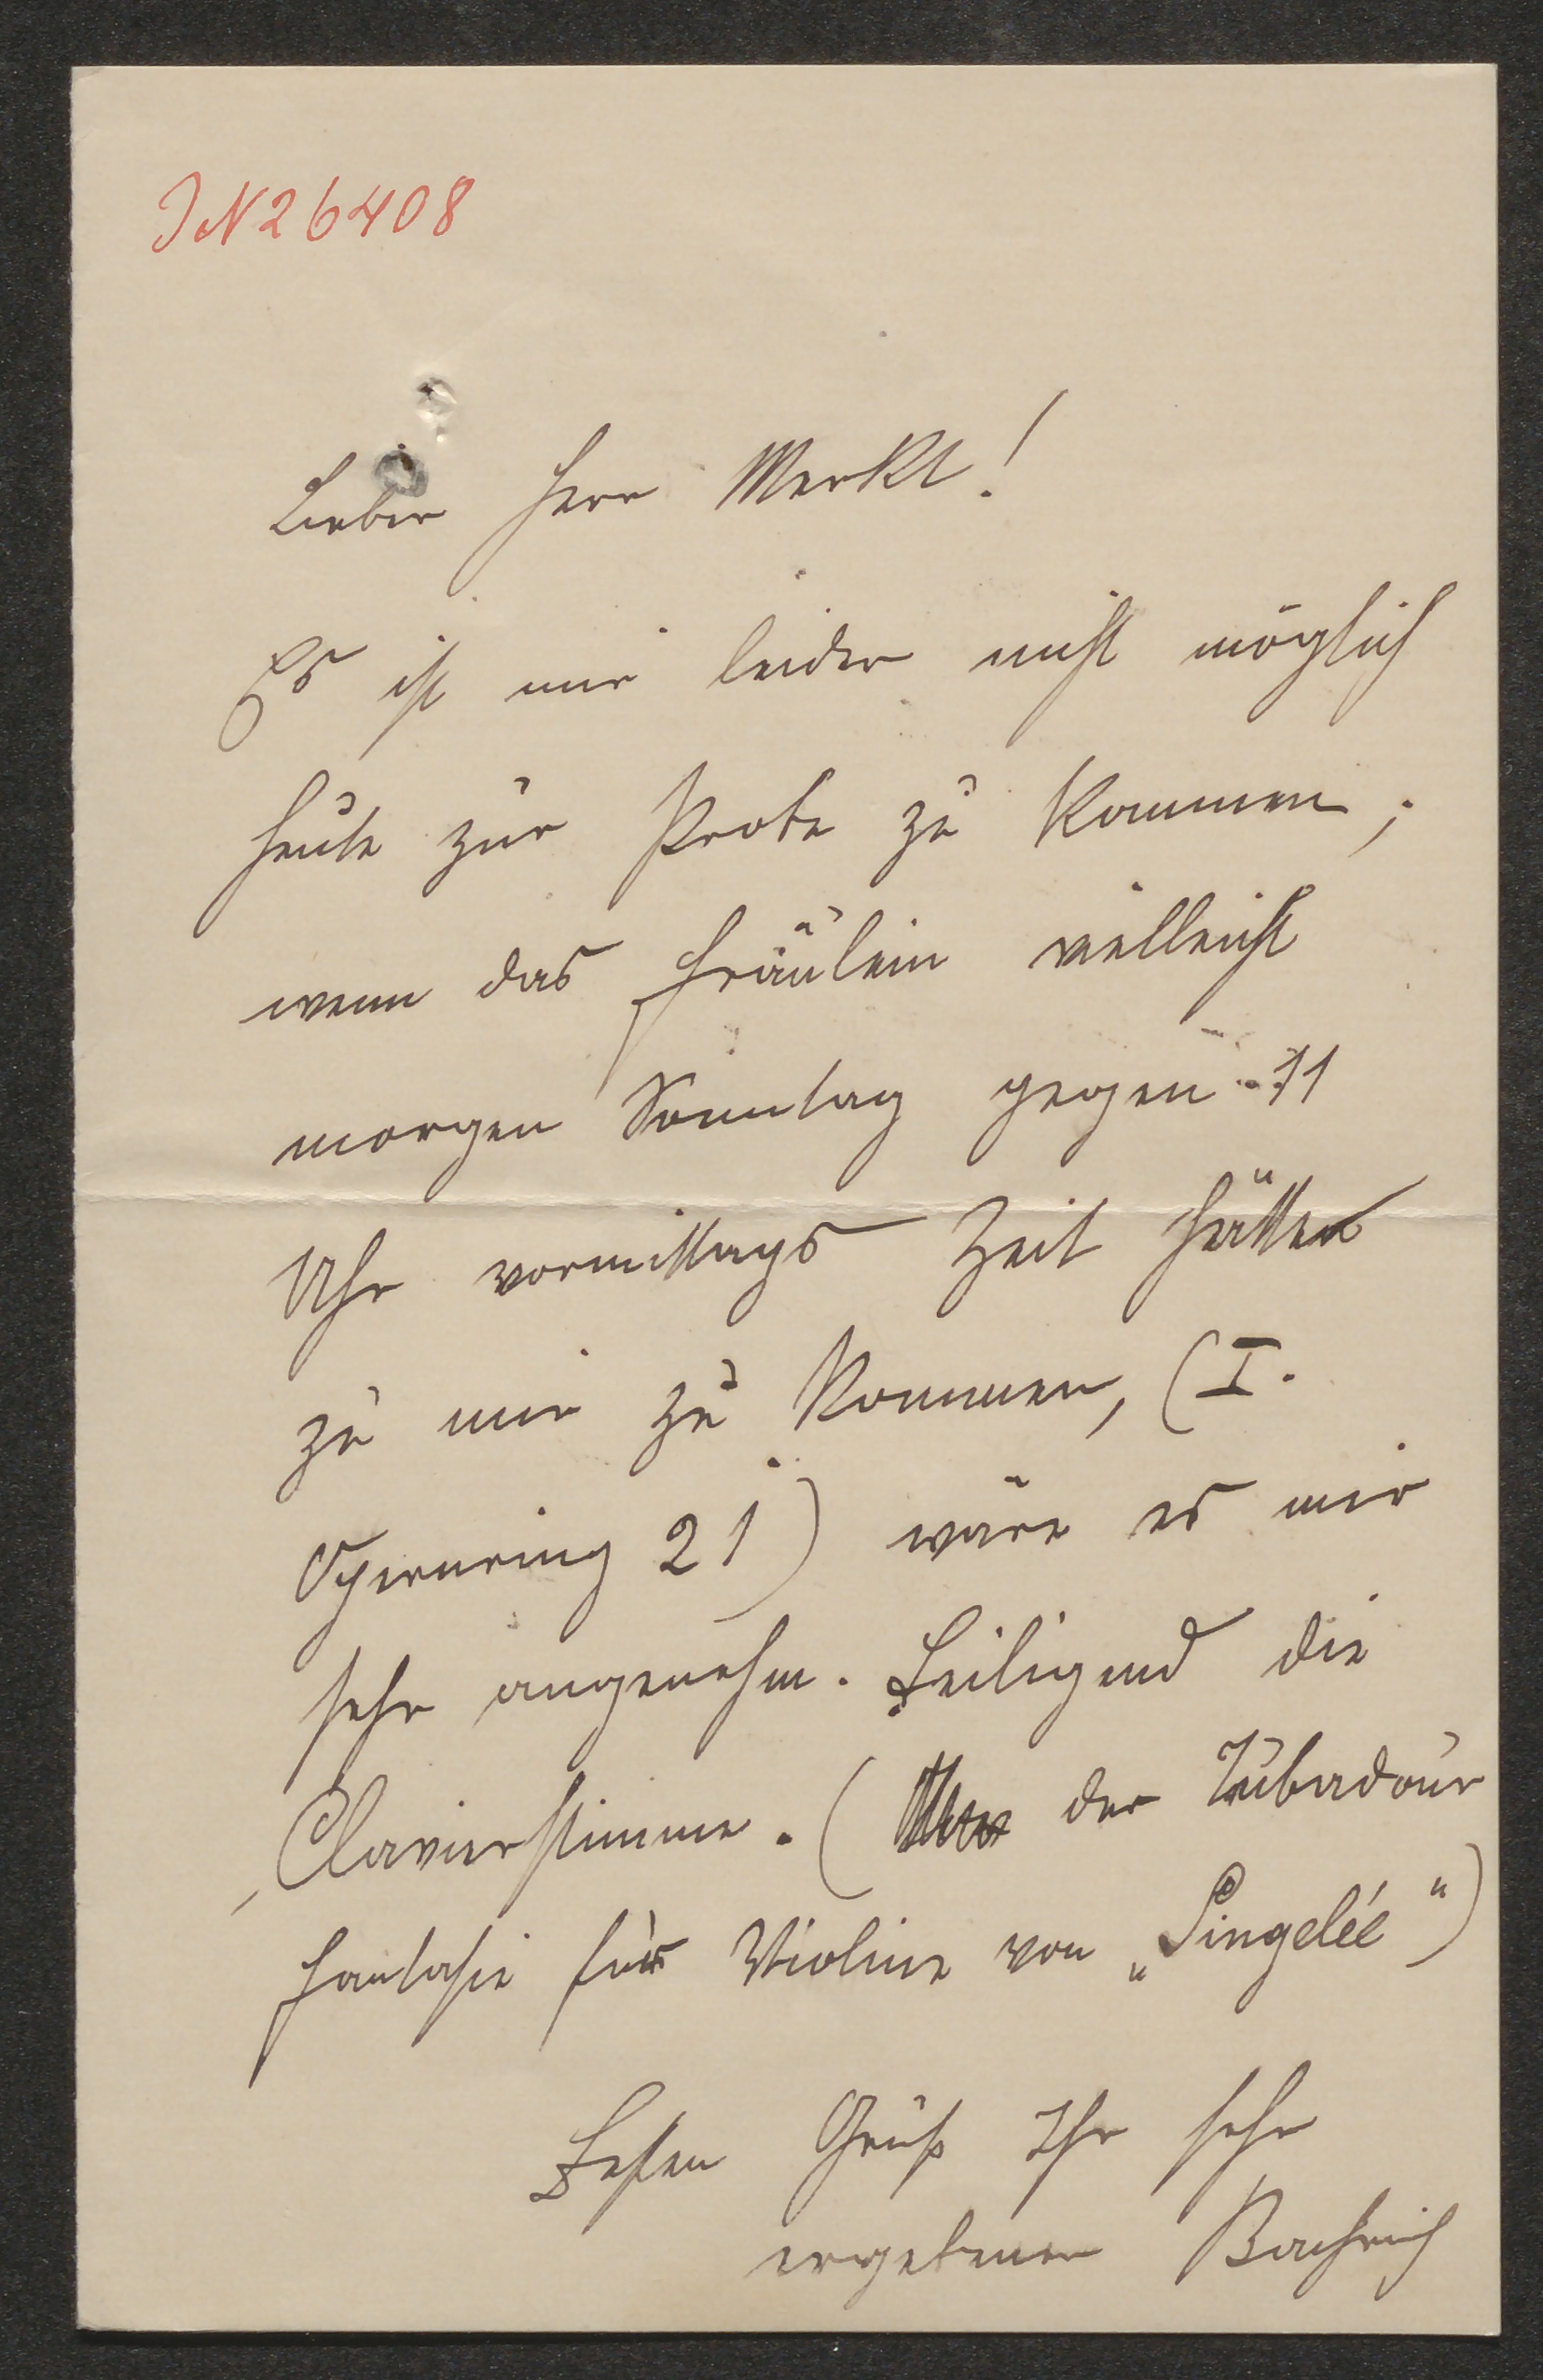 IN 26408
Lieber Herr Merkt!
Es ist mir leider nicht möglich
heute zur Probe zu kommen;
wenn das Fräulein vielleicht
morgen Sonntag gegen 11
Uhr vormittags Zeit hätte
zu mir zu kommen, (I.
Opernring 21) wäre es mir
sehr angenehm. Beiligend die
Clavierstimme. ( der Trubadour
Fantasie für Violine von „Singelée“)
Besten Gruß Ihr sehr
ergebener Bachrich